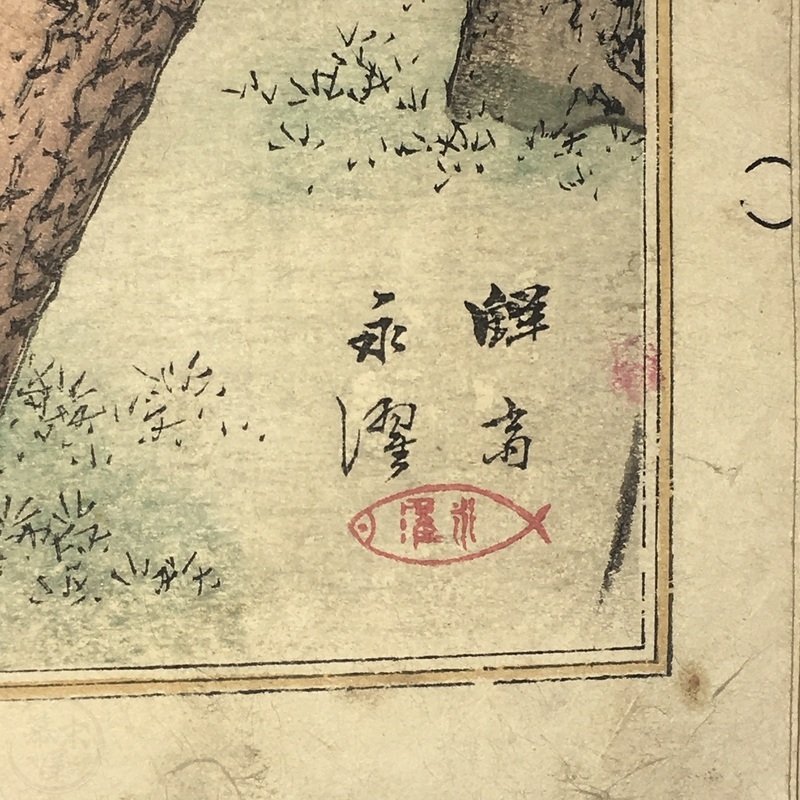 鮮斎
永濯
永濯